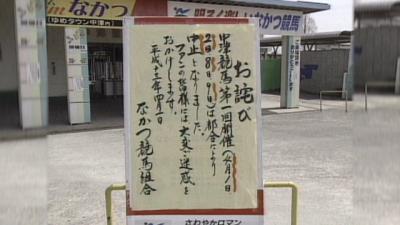 なかつ
ゆめタウン中津内
明るく楽しいなかつ競馬
お詫び
中津競馬第一回開催(四月一日
2日8日9日)は都合により
中止となりました。
ファンの皆様には大変ご迷惑を
おかけします。
平成十三年四月一日
なかつ競馬組合
さわやかロマン